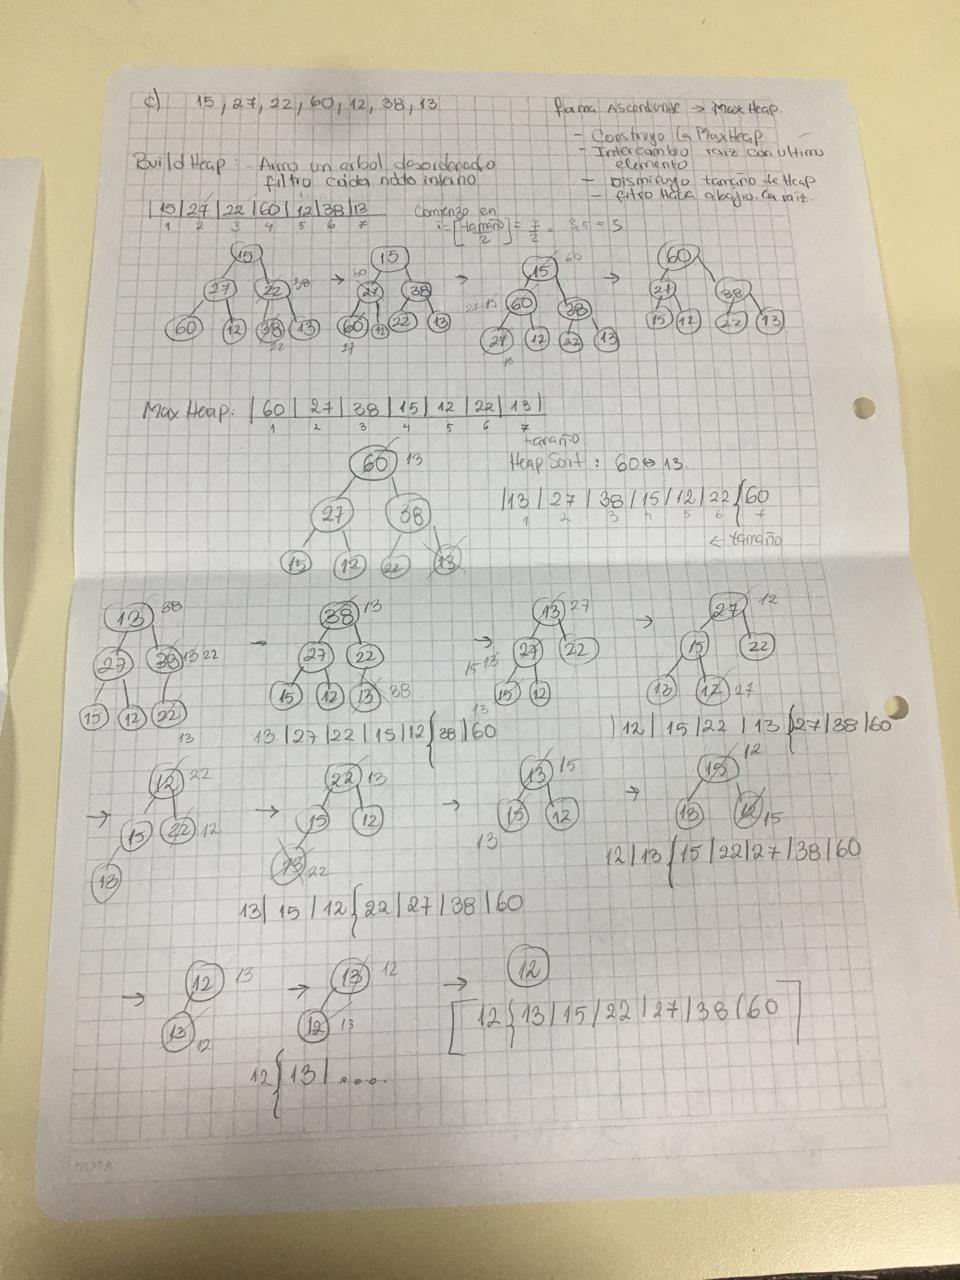 c) 15, 27, 22, 60, 12, 38, 13
forma Ascendente → MaxHeap.
- Construyo la MaxHeap
- Intercambio raiz con ultimo
elemento
- Disminuyo tamaño de Heap
- filtro Hacia abajo la raiz.
Build Heap: - Armo un arbol desordenado
filtro cada nodo interno
|15|27|22|60|12|38|13
1 2 3 4 5 6 7
Comienzo en
i=[tamaño/2] = 7/2 = 3,5 = 3
15 → 15 60 → 15 60 → 60
27 22 38 60 27 38 27 15 60 38 27 38
60 12 38 13 60 12 22 13 27 12 22 13 15 12 22 13
22 27 15
Max Heap: |60|27|38|15|12|22|13|
1 2 3 4 5 6 7
tamaño
60 13
Heap Sort: 60↔13
27 38
|13|27|38|15|12|22{60
1 2 3 4 5 6 7
← tamaño
15 12 22 13
13 38 → 38 13 → 13 27 → 27 12
27 38 13 22 27 22 15 13 27 22 15 22
15 12 22 15 12 13 38 15 12 13 12 27
13 13
13|27|22|15|12{38|60
|12|15|22|13{27|38|60
→ 12 22 → 22 13 → 13 15 → 15 12
15 22 12 15 12 15 12 13 12 15
13 13 22 13
12|13{15|22|27|38|60
13|15|12{22|27|38|60
→ 12 13 → 13 12 → 12
13 12 12 13
[12{13|15|22|27|38|60]
12{13|....
NOTA